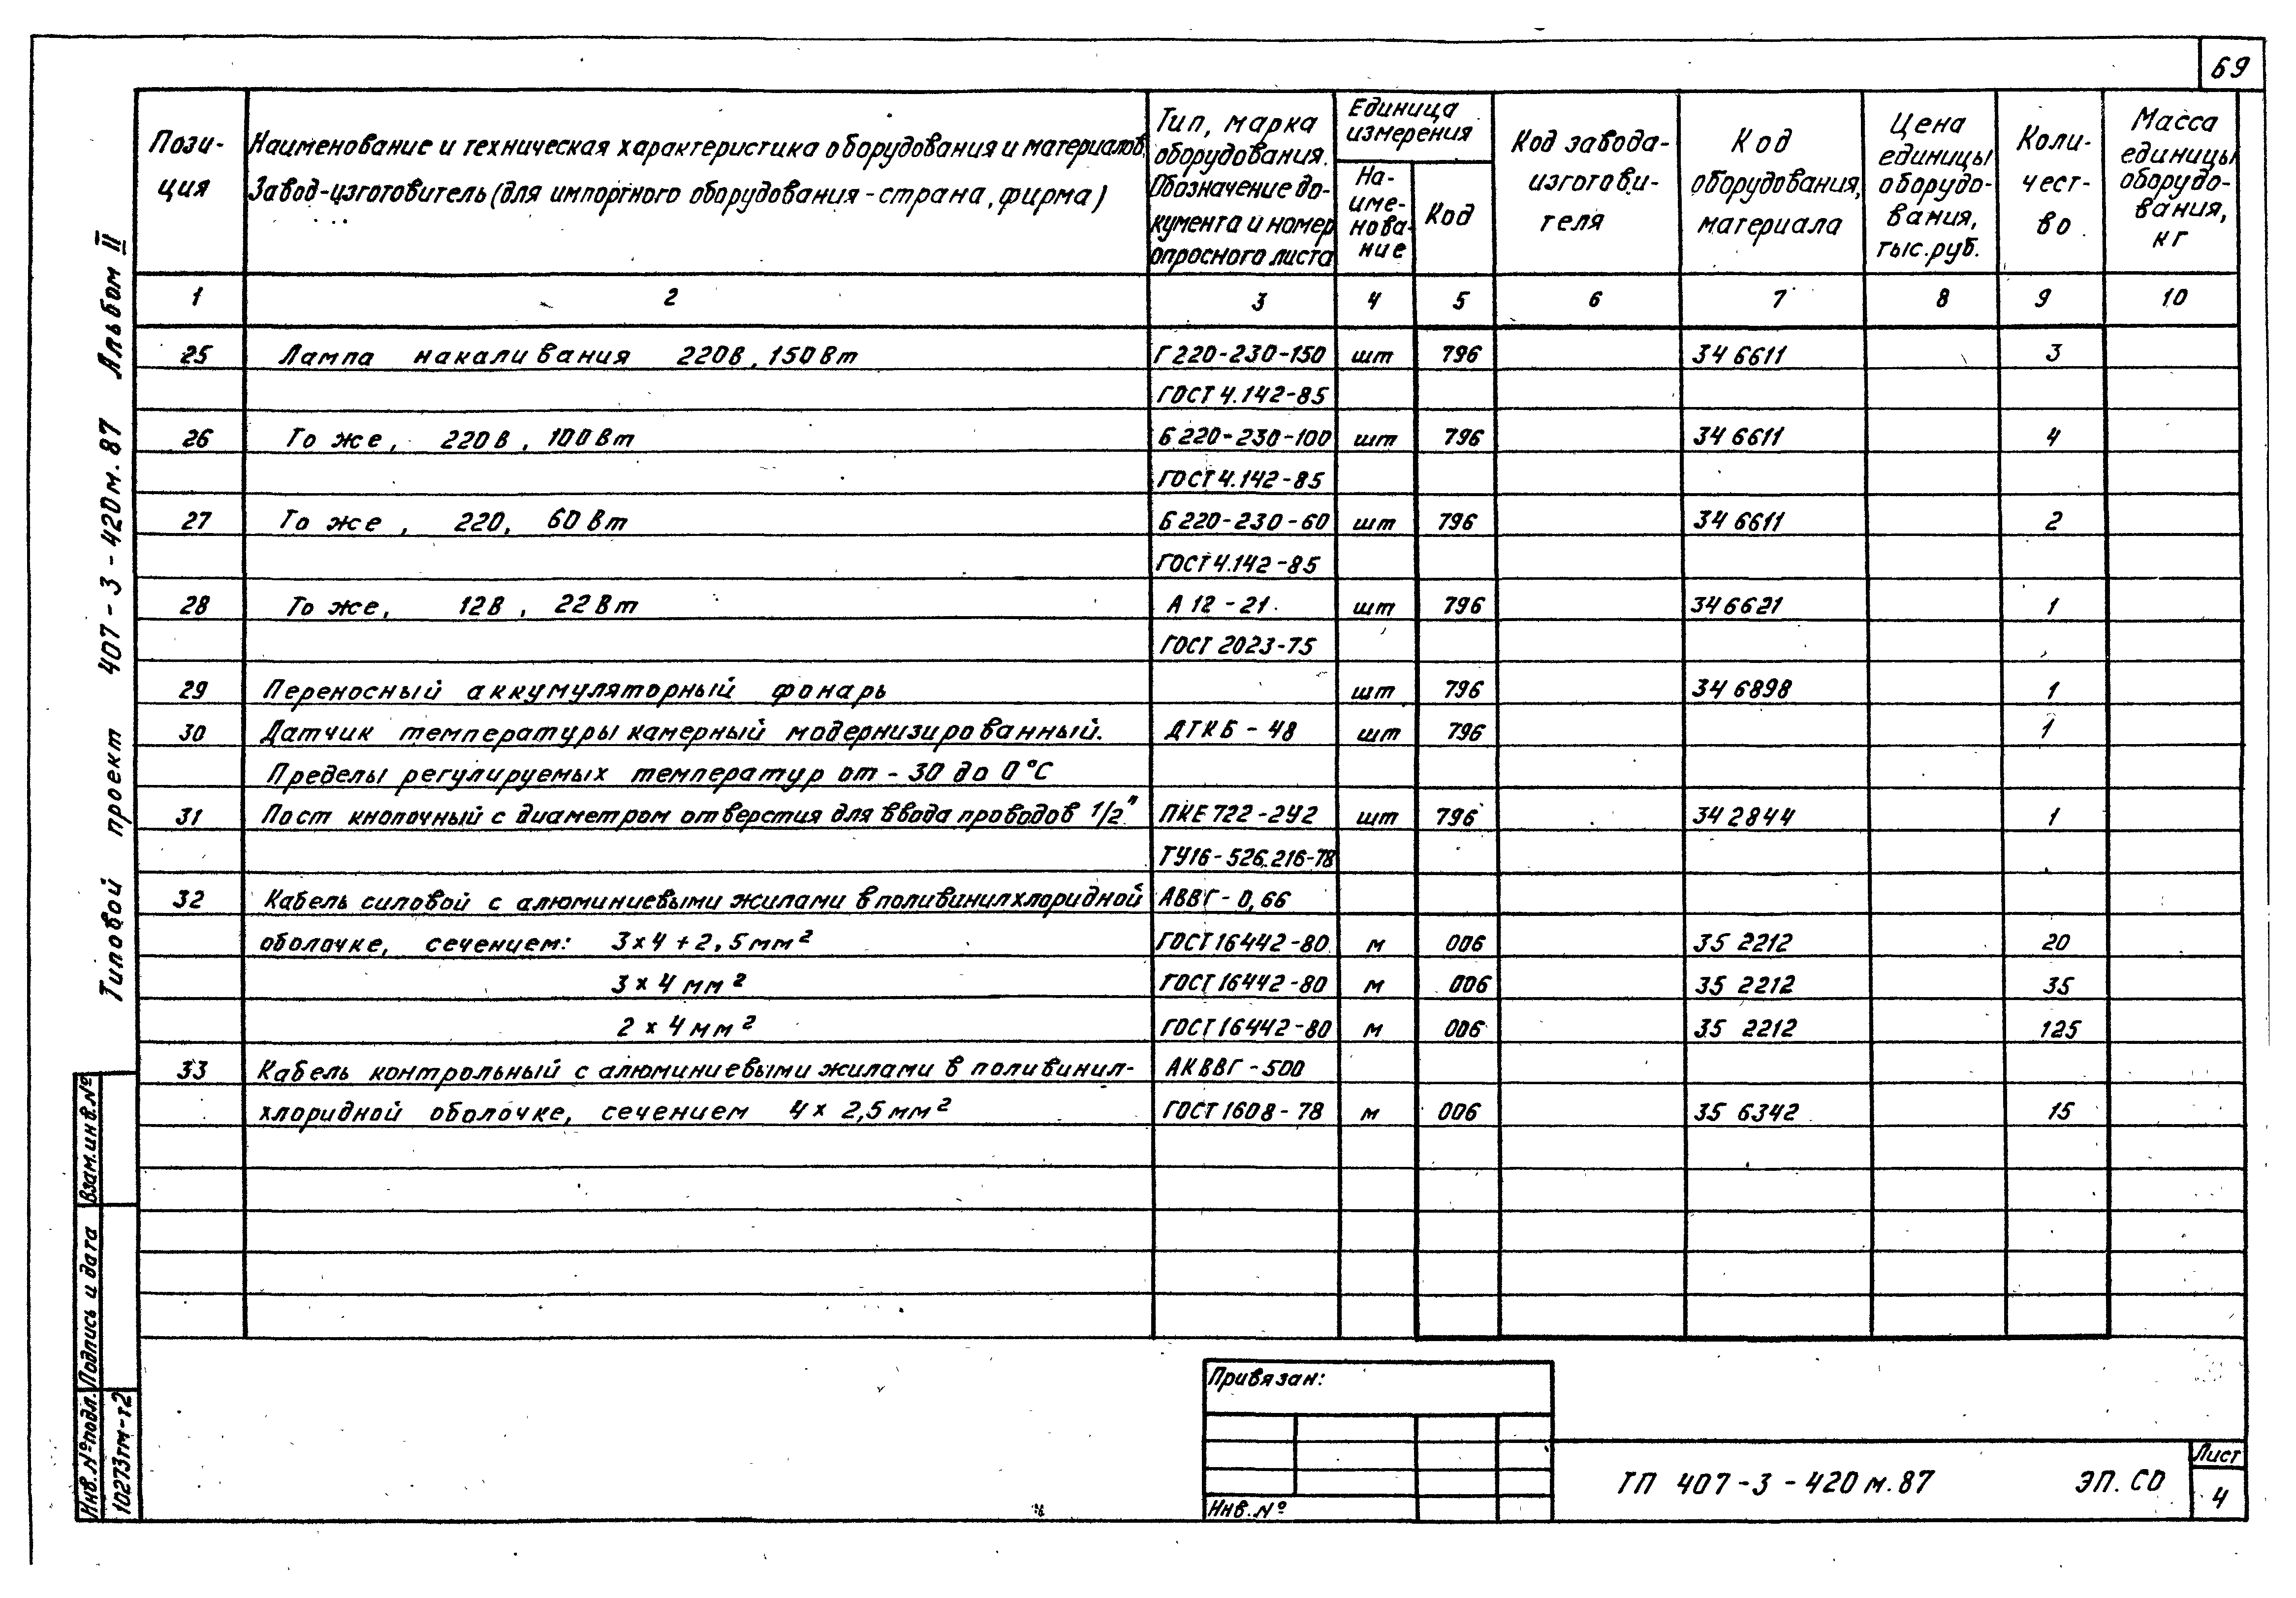 69
Пози-
ция
Наименование и техническая характеристика оборудования и материалов.
Завод-изготовитель (для импортного оборудования - страна, фирма)
Тип, марка
оборудования.
Обозначение до-
кумента и номер
опросного листа
Единица
измерения
На-
име-
нова-
ние
Код
Код завода-
изготови-
теля
Код
оборудования,
материала
Цена
единицы
оборудо-
вания,
тыс. руб.
Коли-
чест-
во
Масса
единицы
оборудо-
вания,
кг
1 2 3 4 5 6 7 8 9 10
25 Лампа накаливания 220В, 150Вт Г 220-230-150 шт 796 34 6611 3
ГОСТ 4.142-85
26 То же, 220В, 100Вт Б 220-230-100 шт 796 34 6611 4
ГОСТ 4.142-85
27 То же, 220, 60Вт Б 220-230-60 шт 796 34 6611 2
ГОСТ 4.142-85
28 То же, 12В, 22Вт А 12-21 шт 796 34 6621 1
ГОСТ 2023-75
29 Переносный аккумуляторный фонарь шт 796 34 6898 1
30 Датчик температуры камерный модернизированный. ДТКБ-48 шт 796 1
Пределы регулируемых температур от -30 до 0°С
31 Пост кнопочный с диаметром отверстия для ввода проводов 1/2" ПКЕ 722-2У2 шт 796 34 2844 1
ТУ16-526.216-78
32 Кабель силовой с алюминиевыми жилами в поливинилхлоридной АВВГ-0,66
оболочке, сечением: 3×4+2,5мм² ГОСТ 16442-80 м 006 35 2212 20
3×4мм² ГОСТ 16442-80 м 006 35 2212 35
2×4мм² ГОСТ 16442-80 м 006 35 2212 125
33 Кабель контрольный с алюминиевыми жилами в поливинил- АКВВГ-500
хлоридной оболочке, сечением 4×2,5мм² ГОСТ 1608-78 м 006 35 6342 15
Типовой проект 407-3-420м.87 Альбом II
Взам.инв.№
Подпись и дата
Инв.№ подл.
10273тм-т2
Привязан:
Инв.№
ТП 407-3-420м.87 ЭП.СО
Лист
4